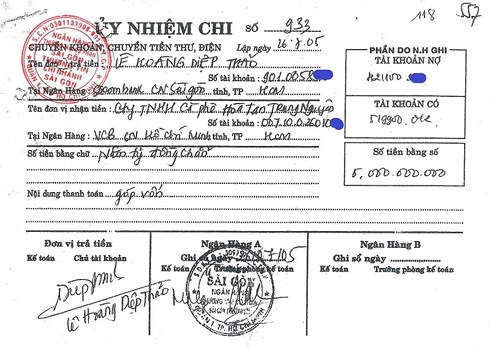 ỦY NHIỆM CHI SỐ 933
CHUYỂN KHOẢN, CHUYỂN TIỀN THƯ, ĐIỆN Lập ngày 26/7/05
118 557
PHẦN DO N.H GHI
Tên đơn vị trả tiền: LÊ HOÀNG DIỆP THẢO
TÀI KHOẢN NỢ
Số tài khoản: 901.0058
Tại Ngân Hàng: CN Sài Gòn tỉnh, TP HCM
TÀI KHOẢN CÓ
Tên đơn vị nhận tiền: Cty TNHH Cà phê Hòa Tan Trung Nguyên
Số tài khoản: 007.10.0
Tại Ngân Hàng: VCB CN Hồ Chí Minh tỉnh, TP HCM
Số tiền bằng số
Số tiền bằng chữ Năm tỷ đồng chẵn
5,000.000.000
Nội dung thanh toán góp vốn
Đơn vị trả tiền
Kế toán Chủ tài khoản
Ngân Hàng A
Ghi sổ ngày
Kế toán Trưởng phòng kế toán
Ngân Hàng B
Ghi sổ ngày
Kế toán Trưởng phòng kế toán
Lê Hoàng Diệp Thảo
NGÂN HÀNG
SÀI GÒN
THƯƠNG TÍN
CHI NHÁNH
SÀI GÒN
SÀI GÒN
QUẬN 1 TP. HỒ CHÍ MINH